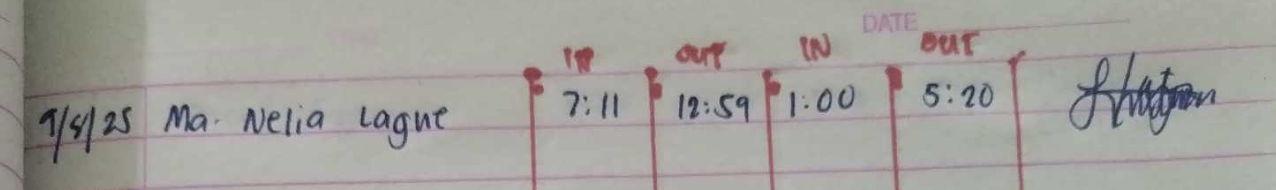 DATE
IN OUT IN OUT
9/8/25 Ma. Nelia Lague 7:11 12:59 1:00 5:20